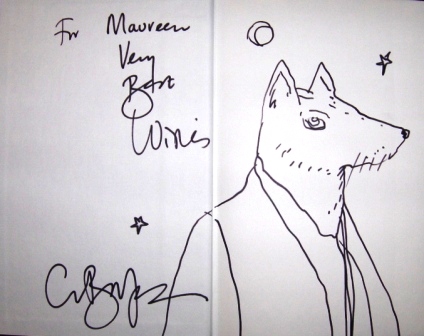 For Maureen
Very
Best
Wishes